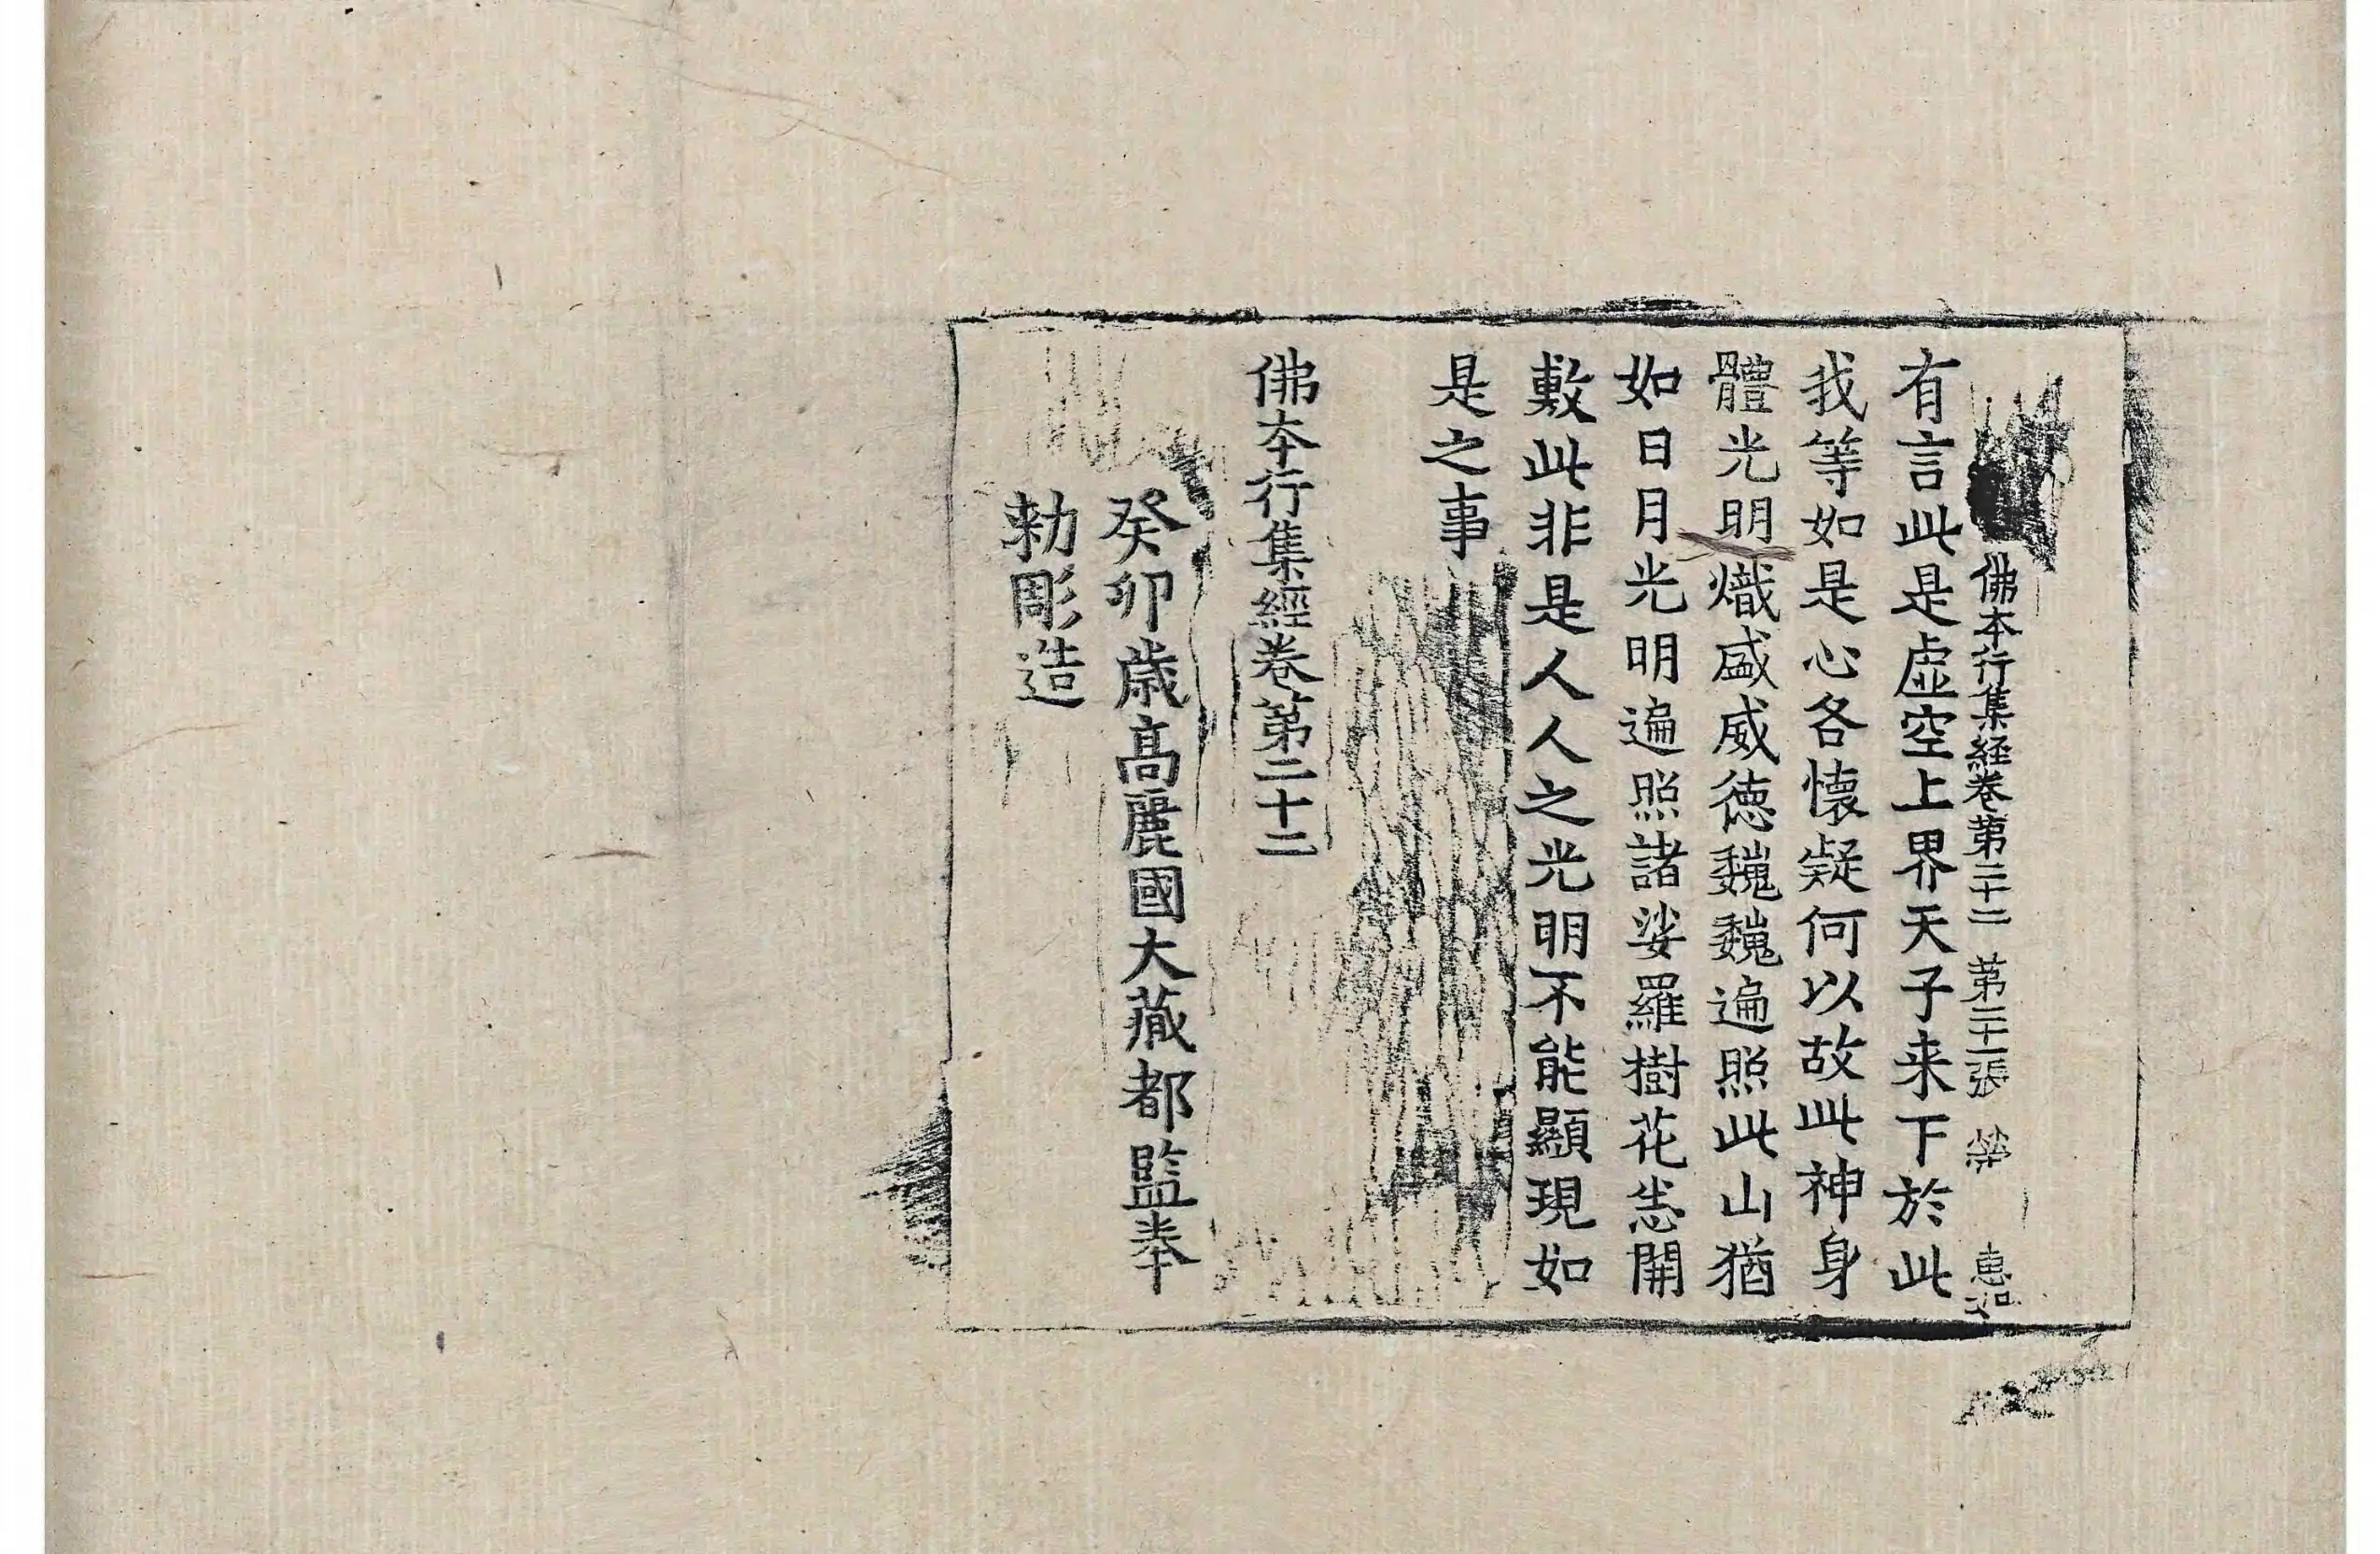 佛本行集經卷第二十二 第二十一張 榮 惠
有言此是虛空上界天子来下於此
我等如是心各懷疑何以故此神身
體光明熾盛威德巍巍遍照此山猶
如日月光明遍照諸娑羅樹花悉開
敷此非是人人之光明不能顯現如
是之事
佛本行集經卷第二十二
癸卯歲高麗國大藏都監奉
勅彫造